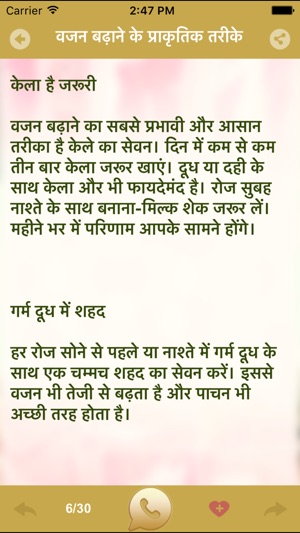 Carrier 2:47 PM
वजन बढ़ाने के प्राकृतिक तरीके
केला है जरूरी
वजन बढ़ाने का सबसे प्रभावी और आसान
तरीका है केले का सेवन। दिन में कम से कम
तीन बार केला जरूर खाएं। दूध या दही के
साथ केला और भी फायदेमंद है। रोज सुबह
नाश्ते के साथ बनाना-मिल्क शेक जरूर लें।
महीने भर में परिणाम आपके सामने होंगे।
गर्म दूध में शहद
हर रोज सोने से पहले या नाश्ते में गर्म दूध के
साथ एक चम्मच शहद का सेवन करें। इससे
वजन भी तेजी से बढ़ता है और पाचन भी
अच्छी तरह होता है।
6/30